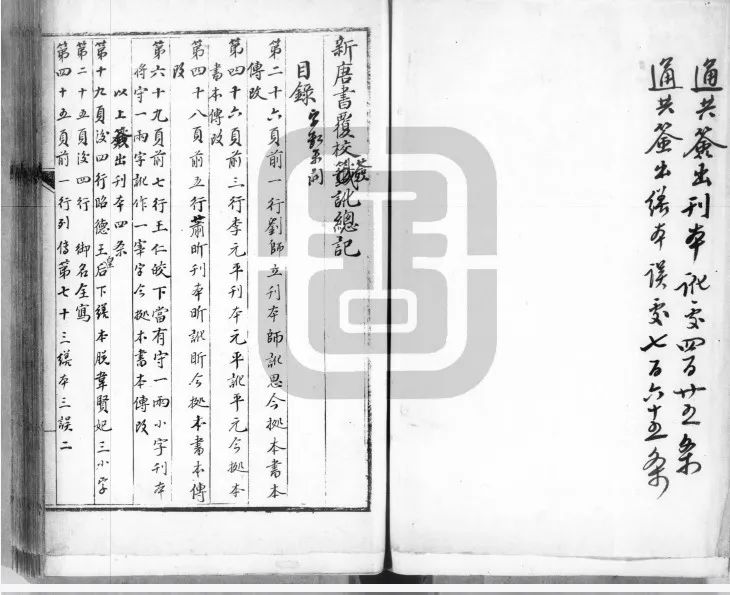 通共簽出刊本訛處四百廿五条
通共簽出繕本誤處七百六十五条
新唐書覆校籤訛總記
簽
目錄
第二十六頁前一行劉師立刊本師訛思今撿本書本
傳改
第四十六頁前三行李元平刊本元平訛平元今撿本
書本傳改
第四十八頁前五行蕭昕刊本昕訛昕今撿本書本傳
改
第六十九頁前七行王仁皎下當有守一兩小字刊本
將守一兩字訛作一宰字今撿本書本傳改
以上簽出刊本四条
第十九頁後四行昭德王皇后下繕本脫韋賢妃三小字
第二十五頁後四行御名全寫
第四十五頁前一行列傳第七十三繕本三誤二